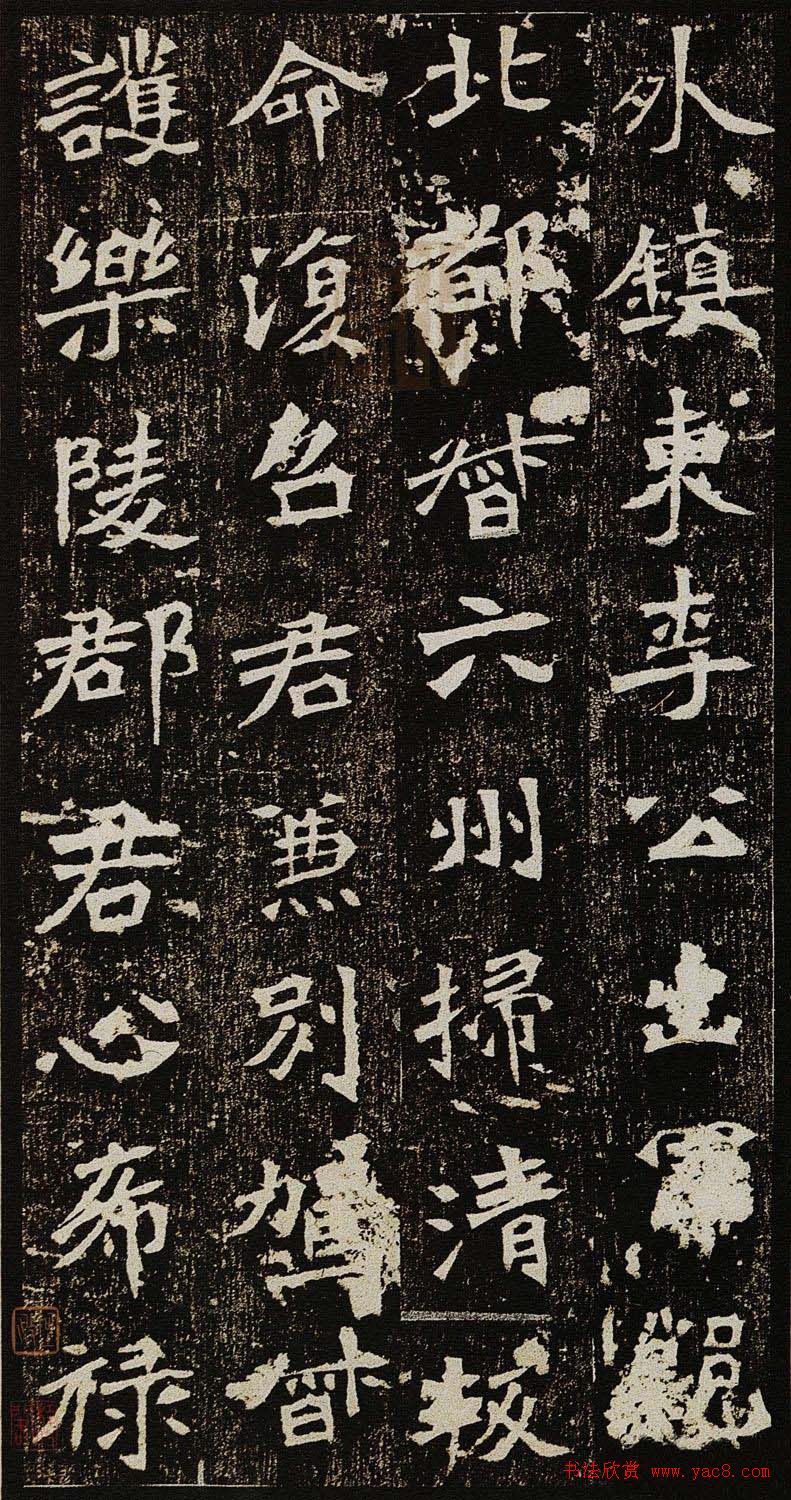 外鎮東李公出
北都督六州掃清叛
命復召君兼別駕督
護樂陵郡君心希祿
书法欣赏 www.yac8.com